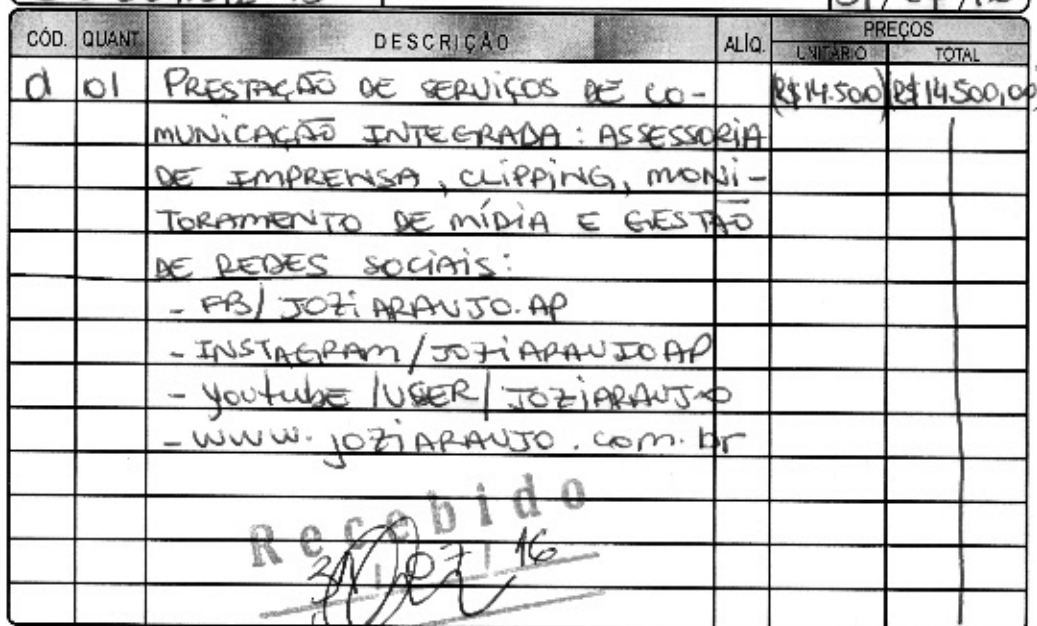 CÓD. QUANT. DESCRIÇÃO ALÍQ. PREÇOS
UNITÁRIO TOTAL
d 01 PRESTAÇÃO DE SERVIÇOS DE CO- R$14.500 R$14.500,00
MUNICAÇÃO INTEGRADA: ASSESSORIA
DE IMPRENSA, CLIPPING, MONI-
TORAMENTO DE MÍDIA E GESTÃO
DE REDES SOCIAIS:
- FB/ JOZIARAUJO.AP
- INSTAGRAM/JOZIARAUJOAP
- YouTubE /USER/ JOZIARAUJO
- WWW.JOZIARAUJO.com.br
Recebido
31/07/16